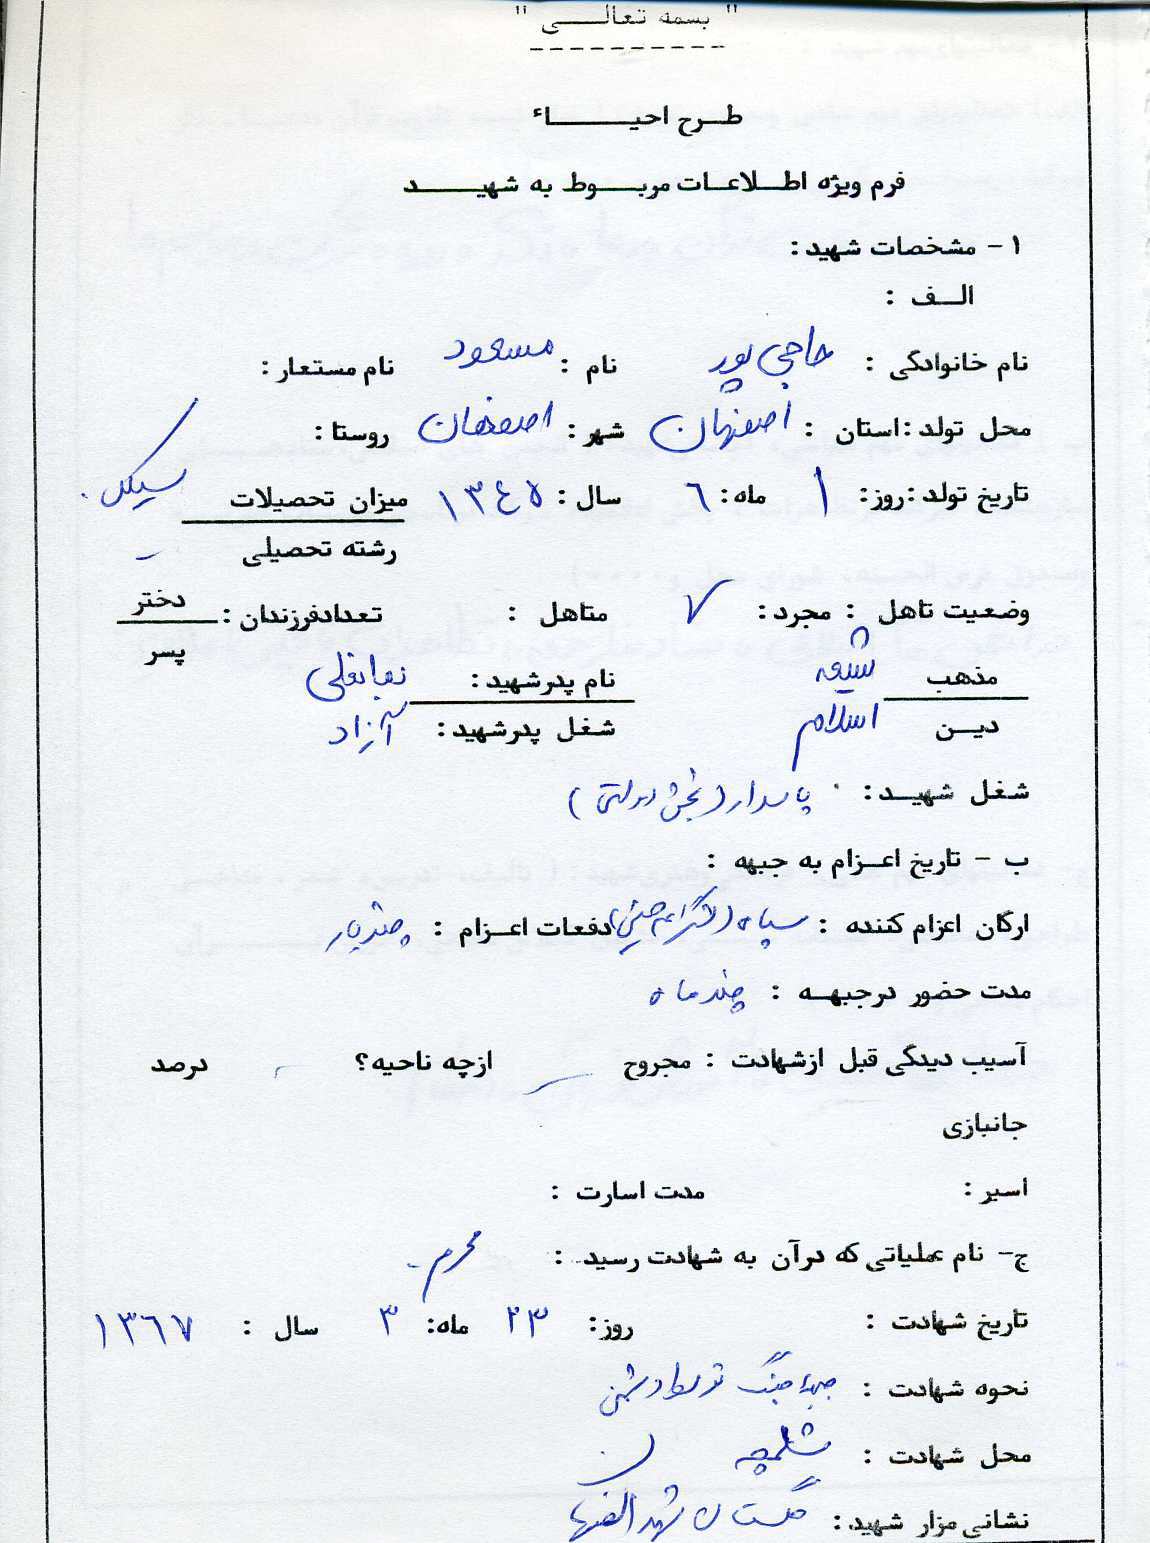 " بسمه تعالـــی "
طـرح احیـــاء
فرم ویژه اطـلاعـات مربـوط به شهیـــد
۱ - مشخصات شهید :
الـف :
نام خانوادگی : حاجی پور نام : مسعود نام مستعار :
محل تولد : استان : اصفهان شهر : اصفهان روستا :
تاریخ تولد : روز : ۱ ماه : ۶ سال : ۱۳٤٥ میزان تحصیلات سیکل
رشته تحصیلی -
وضعیت تاهل : مجرد : ✓ متاهل : تعدادفرزندان : دختر
پسر
مذهب شیعه نام پدرشهید :
دیـن اسلام شغل پدرشهید : آزاد
شغل شهیـد : پاسدار (بخش دولتی)
ب - تاریخ اعـزام به جبهه :
ارگان اعزام کننده : سپاه (لشگر امام حسین) دفعات اعـزام : چندبار
مدت حضور درجبهـه : چند ماه
آسیب دیدگی قبل ازشهادت : مجروح - ازچه ناحیه؟ - درصد
جانبازی
اسیر : مدت اسارت :
ج- نام عملیاتی که درآن به شهادت رسید : محرم
تاریخ شهادت : روز : ۲۳ ماه : ۳ سال : ۱۳٦۷
نحوه شهادت : جبهه جنگ توسط دشمن
محل شهادت : شلمچه
نشانی مزار شهید : گلستان شهدا اصفهان